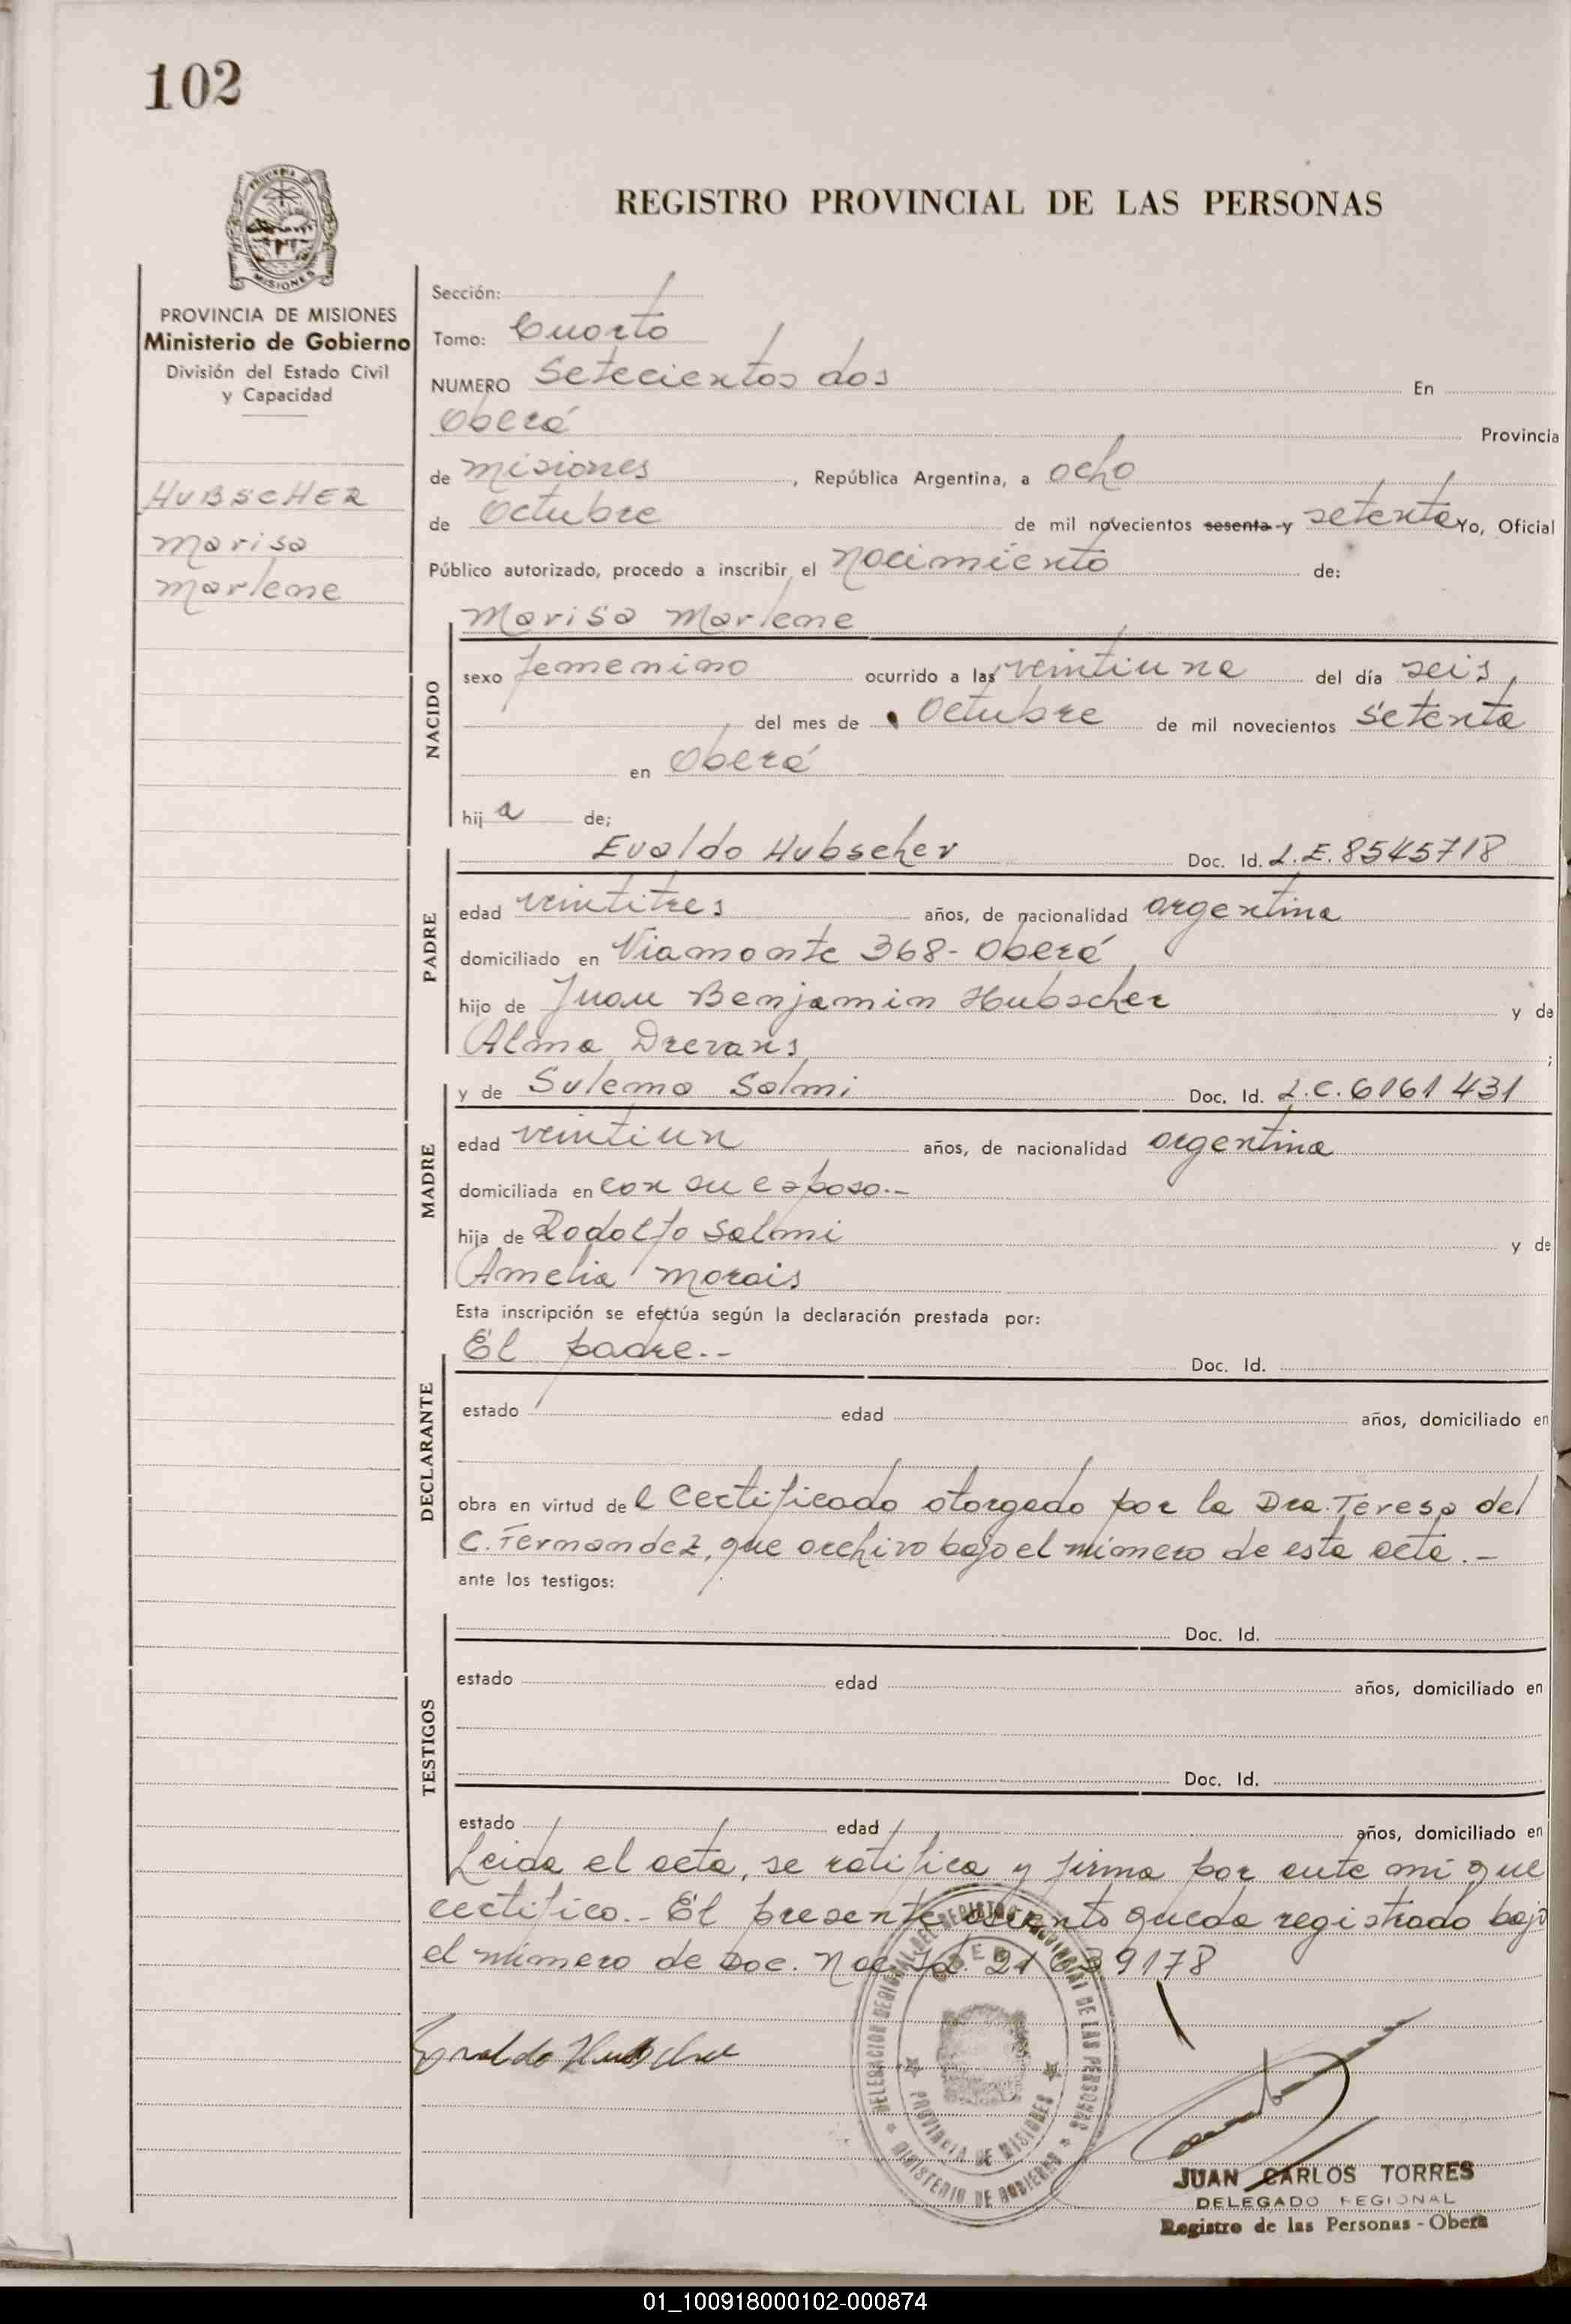 102
REGISTRO PROVINCIAL DE LAS PERSONAS
MISIONES
PROVINCIA DE MISIONES
Ministerio de Gobierno
División del Estado Civil
y Capacidad
HUBSCHER
Marisa
Marlene
Sección:
Tomo: Cuarto
NUMERO Setecientos dos En
Oberá Provincia
de Misiones , República Argentina, a ocho
de Octubre de mil novecientos sesenta y setenta Yo, Oficial
Público autorizado, procedo a inscribir el Nacimiento de:
Marisa Marlene
NACIDO
sexo femenino ocurrido a las veintiuna del día seis
del mes de Octubre de mil novecientos setenta
en Oberá
hij a de;
PADRE
Evaldo Hubscher Doc. Id. L.E. 8545718
edad veintitres años, de nacionalidad argentina
domiciliado en Viamonte 368- Oberá
hijo de Juan Benjamin Hubscher y de
Alma Drevans ;
MADRE
y de Sulema Salmi Doc. Id. L.C. 6161431
edad veintiun años, de nacionalidad argentina
domiciliada en con su esposo.-
hija de Rodolfo Salmi y de
Amelia Morais
Esta inscripción se efectúa según la declaración prestada por:
DECLARANTE
El padre.-- Doc. Id.
estado edad años, domiciliado en
obra en virtud de l Certificado otorgado por la Dra. Teresa del
C. Fernandez, que archivo bajo el número de esta acta.-
ante los testigos:
TESTIGOS
Doc. Id.
estado edad años, domiciliado en
Doc. Id.
estado edad años, domiciliado en
Leida el acta, se ratifica y firma por ante mí que
certifico.- El presente asiento queda registrado bajo
el número de Doc. Nac. Id. 21639178
Evaldo Hubscher
DELEGACION REGIONAL DEL REGISTRO PROVINCIAL DE LAS PERSONAS
PROVINCIA DE MISIONES
MINISTERIO DE GOBIERNO
JUAN CARLOS TORRES
DELEGADO REGIONAL
Registro de las Personas - Oberá
01_100918000102-000874